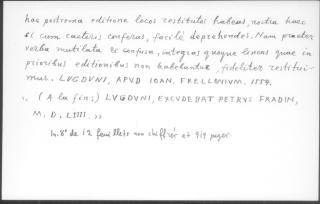 hac postrema editione locos restitutos habeas, nostra haec
si cum caeteris conferas, facilè deprehendes. Nam praeter
verba mutilata & confusa, integras quoque lineas quae in
prioribus editionibus non habebantur, fideliter restitui-
mus. LVGDVNI, APVD IOAN. FRELLONIVM, 1554.
(A la fin:) LVGDVNI, EXCVDEBAT PETRVS FRADIN,
M. D. LIIII. »
In-8° de 12 feuillets non chiffrés et 919 pages.